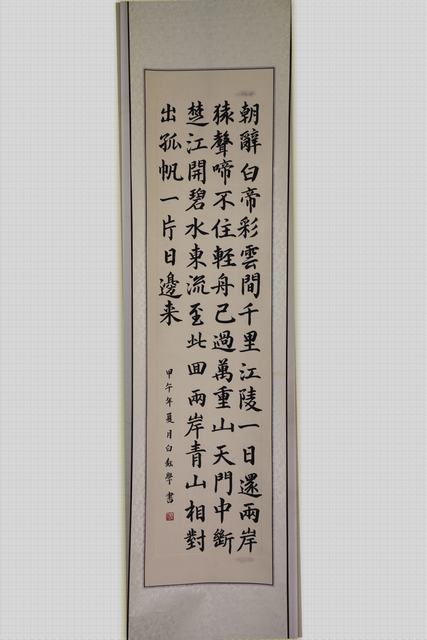 朝辭白帝彩雲間千里江陵一日還兩岸
猿聲啼不住輕舟已過萬重山天門中斷
楚江開碧水東流至此回兩岸青山相對
出孤帆一片日邊来
甲午年夏月白 學書